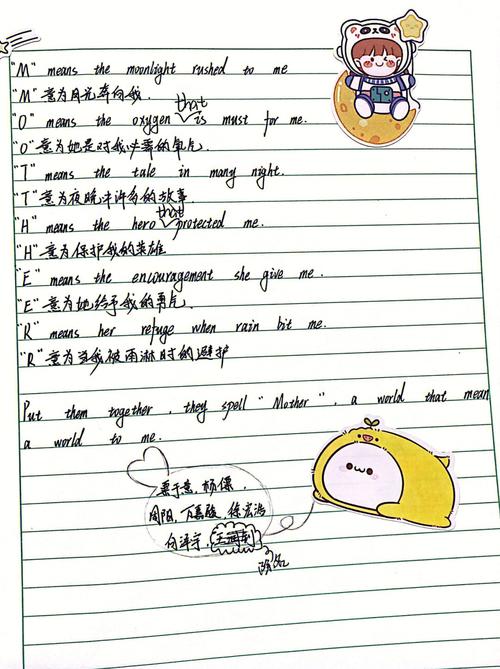 "M" means the moonlight rushed to me
"M"意为月光奔向我.
"O" means the oxygen that is must for me.
"O"意为她是对我必需的氧气.
"T" means the tale in many night.
"T"意为夜晚中许多的故事.
"H" means the hero that protected me.
"H"意为保护我的英雄
"E" means the encouragement she give me.
"E"意为她给予我的勇气.
"R" means her refuge when rain bit me.
"R"意为当我被雨淋时的避护
Put them together, they spell "Mother", a world that mean
a world to me.